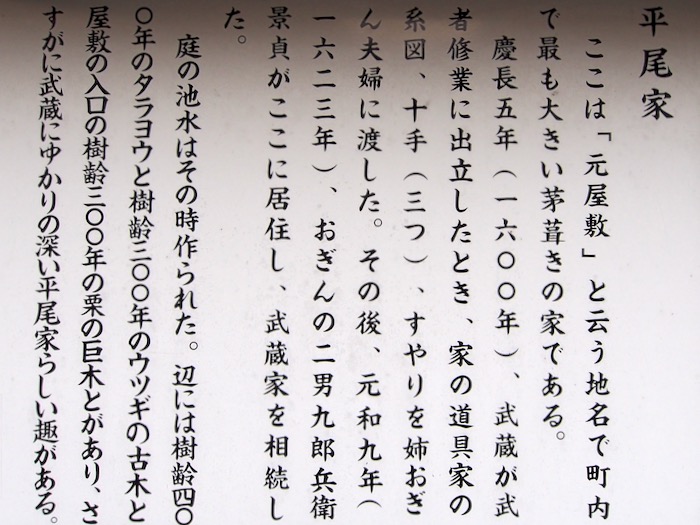 平尾家
ここは「元屋敷」と云う地名で町内
で最も大きい茅葺きの家である。
慶長五年（一六〇〇年）、武蔵が武
者修業に出立したとき、家の道具家の
系図、十手（三つ）、すやりを姉おぎ
ん夫婦に渡した。その後、元和九年（
一六二三年）、おぎんの二男九郎兵衛
景貞がここに居住し、武蔵家を相続し
た。
庭の池水はその時作られた。辺には樹齢四〇
〇年のタラヨウと樹齢三〇〇年のウツギの古木と
屋敷の入口の樹齢三〇〇年の栗の巨木とがあり、さ
すがに武蔵にゆかりの深い平尾家らしい趣がある。